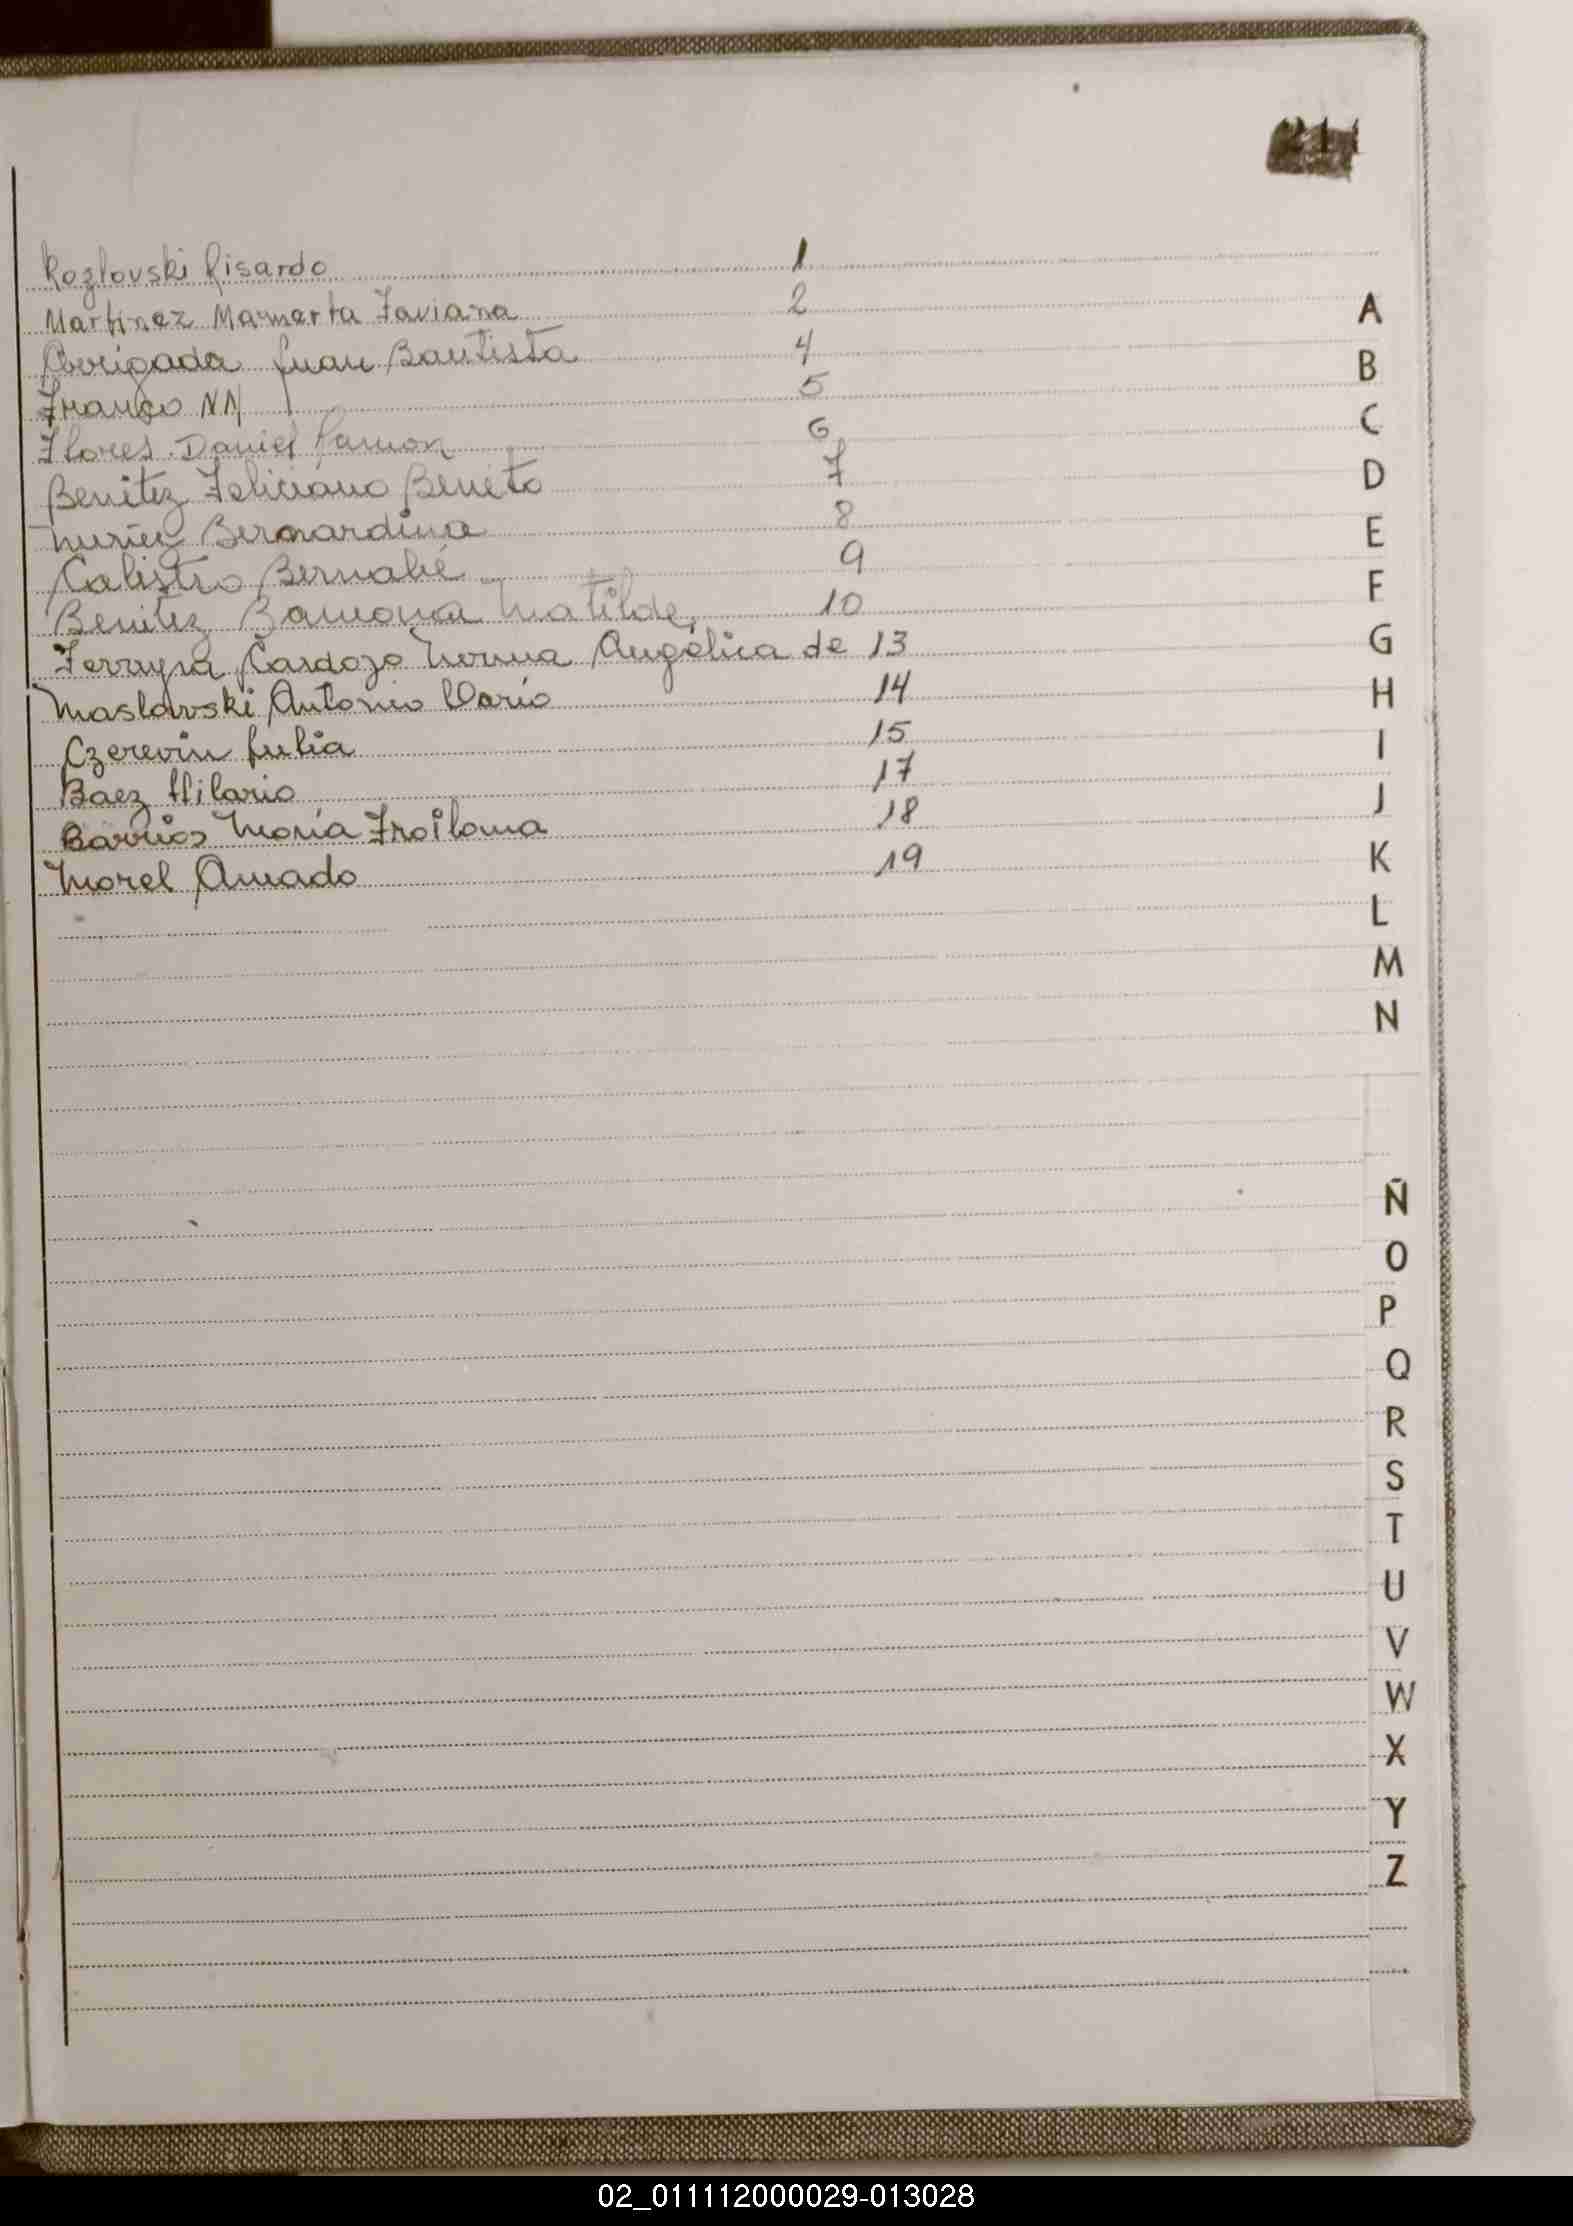 Kozlovski Risardo 1
Martinez Mamerta Faviana 2
Abrigada Juan Bautista 4
Franco NN 5
Flores Daniel Ramon 6
Benitez Feliciano Benito 7
Nuñez Bernardina 8
Calistro Bernabé 9
Benitez Ramona Matilde 10
Ferreyra Cardozo Norma Angélica de 13
Maslowski Antonio Dario 14
Czerevin Julia 15
Baez Hilario 17
Barrios Maria Froilana 18
Morel Amado 19
A
B
C
D
E
F
G
H
I
J
K
L
M
N
Ñ
O
P
Q
R
S
T
U
V
W
X
Y
Z
02_011112000029-013028